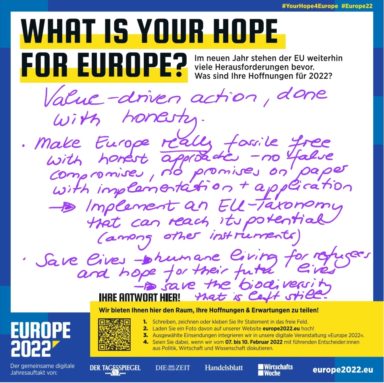 #YourHope4Europe #Europe22
WHAT IS YOUR HOPE
FOR EUROPE?
Im neuen Jahr stehen der EU weiterhin
viele Herausforderungen bevor.
Was sind Ihre Hoffnungen für 2022?
Value-driven action, done
with honesty.
• Make Europe really fossile free
with honest approaches - no false
compromises, no promises on paper
with implementation + application
→ Implement an EU-Taxonomy
that can reach its potential
(among other instruments)
• Save lives → humane living for refugees
and hope for their lives
→ save the biodiversity
that is left still.
IHRE ANTWORT HIER!
Wir bieten Ihnen hier den Raum, Ihre Hoffnungen & Erwartungen zu teilen!
1 Schreiben, zeichnen oder kleben Sie Ihr Statement in das freie Feld.
2 Laden Sie ein Foto davon auf unserer Website europe2022.eu hoch!
3 Ausgewählte Einsendungen integrieren wir in unsere digitale Veranstaltung «Europe 2022».
4 Seien Sie dabei, wenn wir vom 07. bis 10. Februar 2022 mit führenden Entscheider:innen
aus Politik, Wirtschaft und Wissenschaft diskutieren.
EUROPE
2022
Der gemeinsame digitale
Jahresauftakt von:
DER TAGESSPIEGEL
DIE ZEIT
Handelsblatt
Wirtschafts
Woche
europe2022.eu